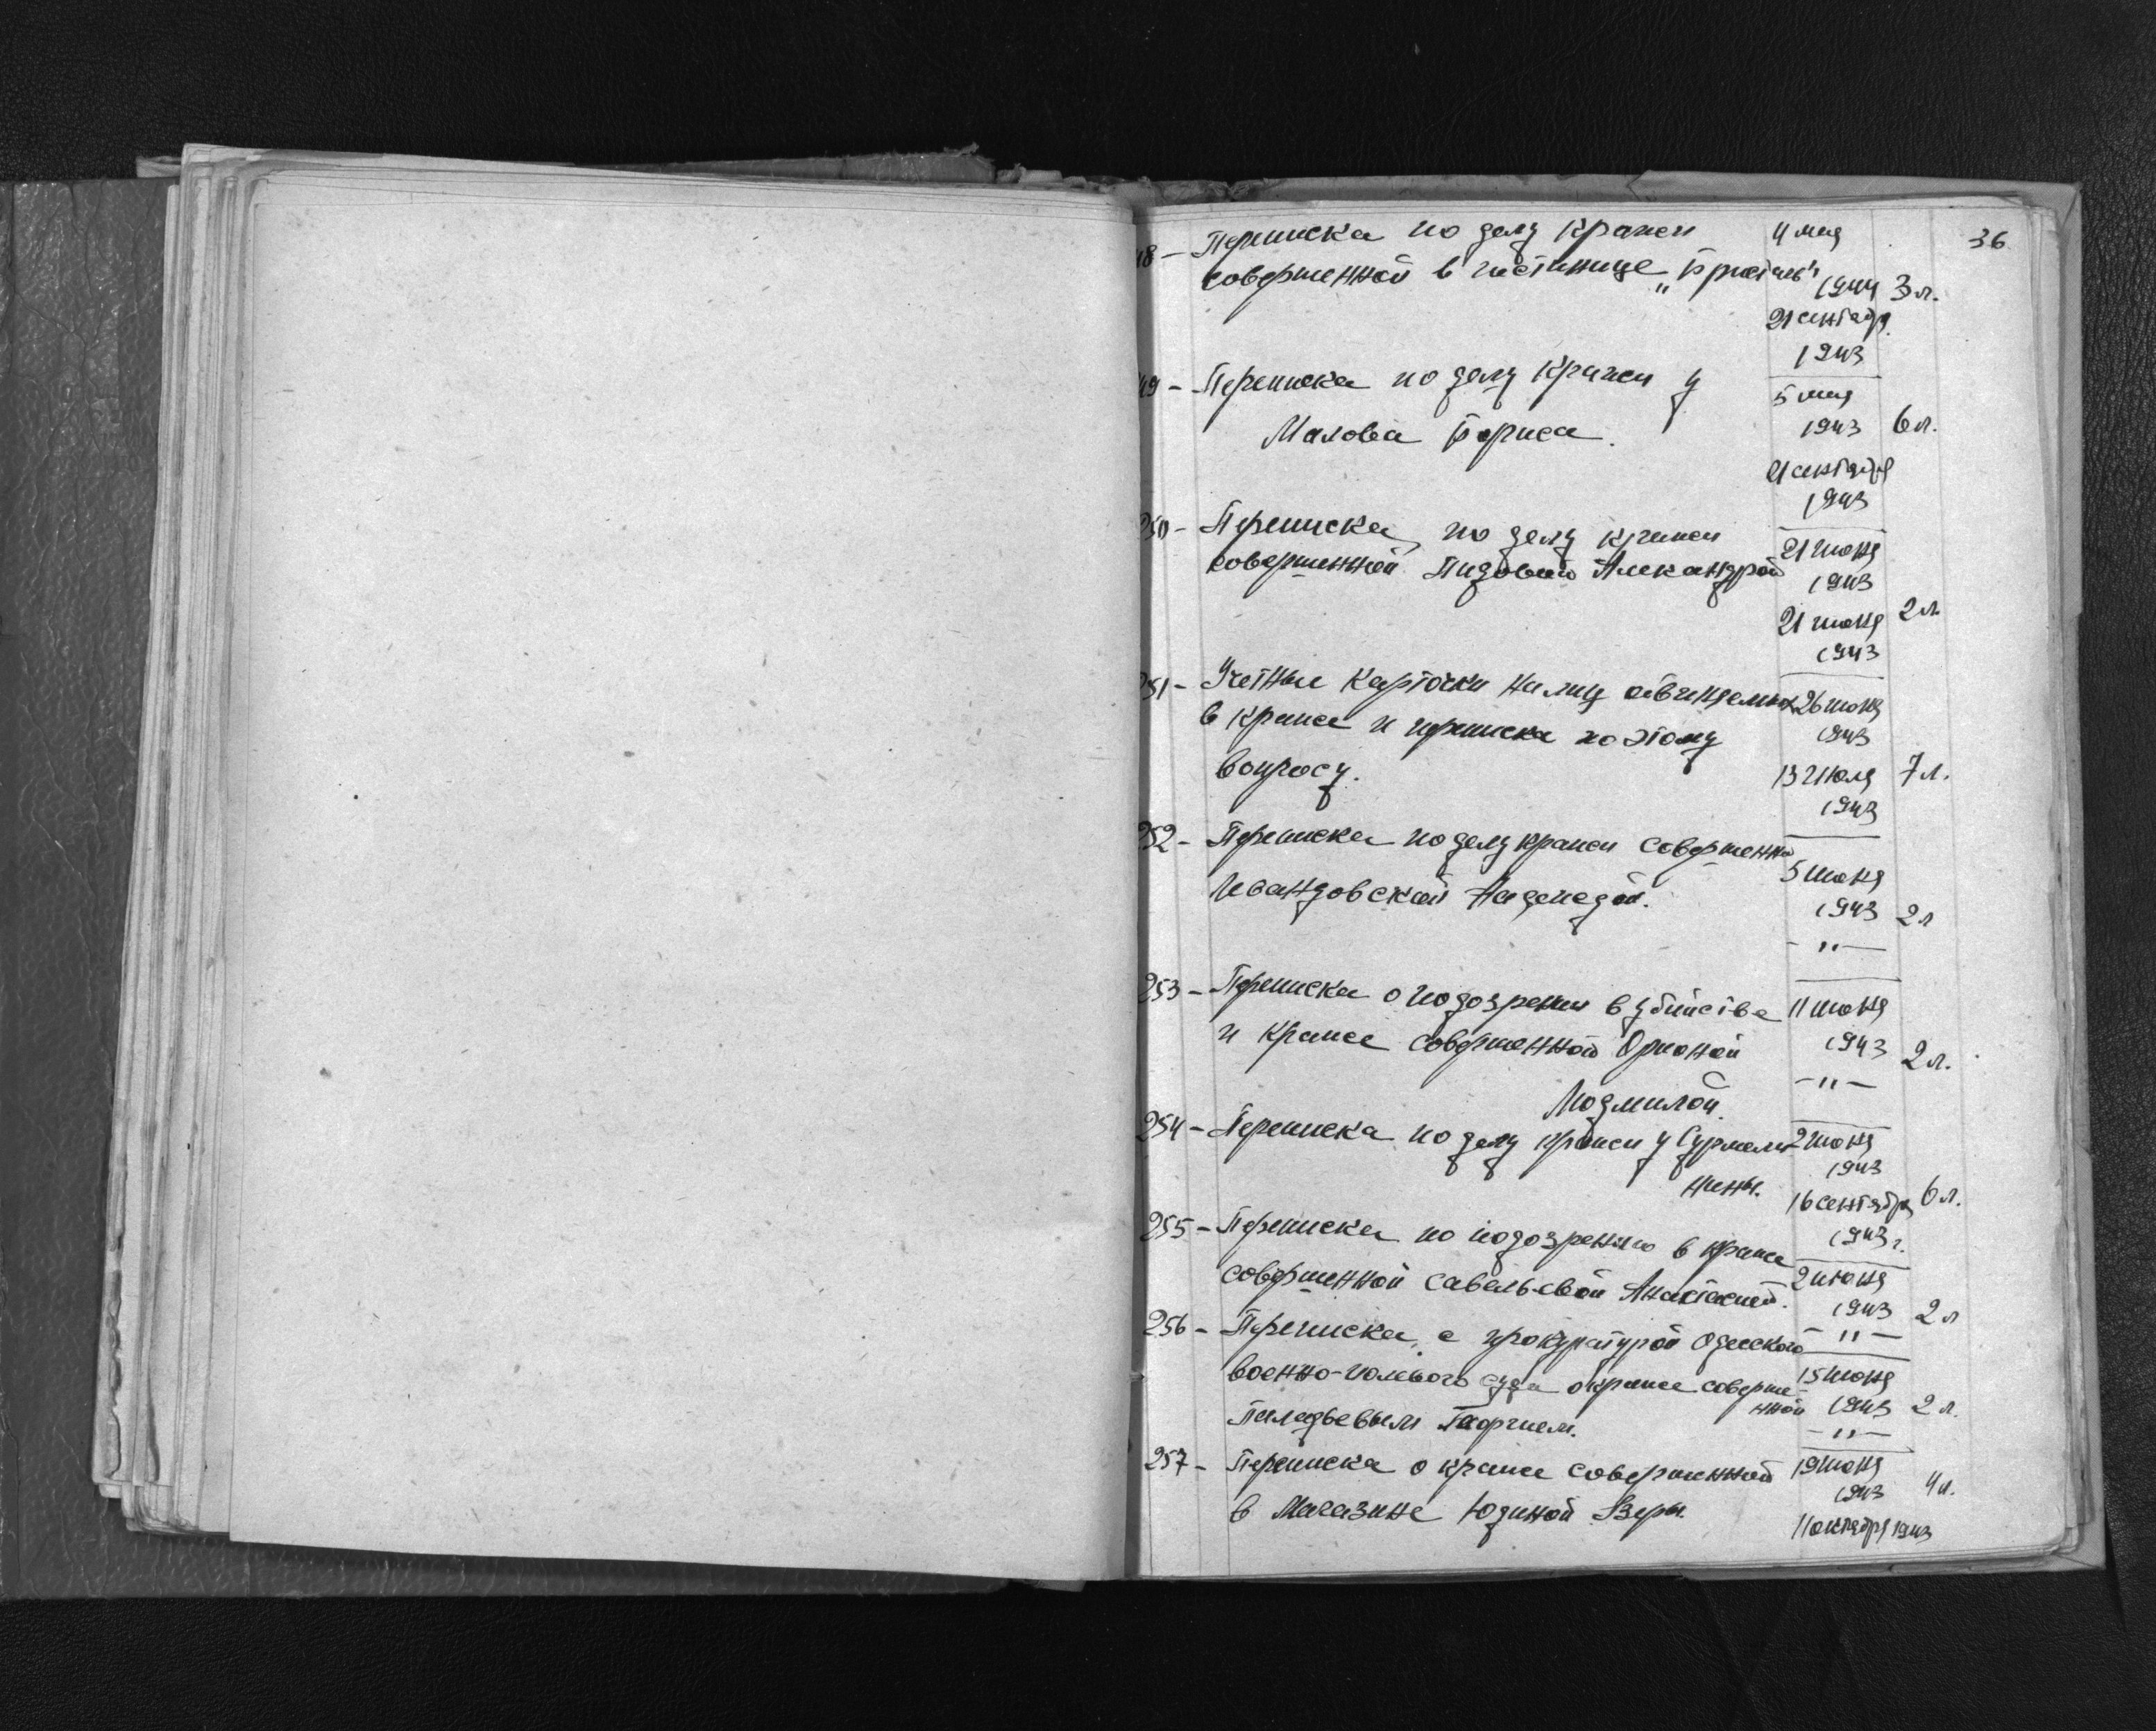 36
48 - Переписка по делу кражи 4 мая
совершенной в гостинице „Бристоль" 1944 3 л.
21 сентябр.
1943
49 - Переписка по делу кражи у 5 мая
Малова Бориса. 1943 6 л.
21 сентября
1943
250 - Переписка по делу кражи 21 июня
совершенной Александрой 1943
21 июня 2 л.
1943
251 - Учетные карточки на лиц обвиняемых 26 июня
в краже и переписка по этому 1943
вопросу. 13 Июля 7 л.
1943
252 - Переписка по делу кражи совершенно 5 июня
Надеждой. 1943 2 л
- " -
253 - Переписка о подозрении в убийстве 11 июня
и краже совершенной 1943 2 л.
Людмилой. - " -
254 - Переписка по делу кражи у 2 июня
1943
Нины. 16 сентября 6 л.
1943 г.
255 - Переписка по подозрению в краже
совершенной Савельевой Анастасией. 2 июня
1943 2 л
256 - Переписка с прокуратурой Одесского - " -
военно-полевого суда о краже соверше- 15 июня
нной 1943 2 л.
Георгием. - " -
257 - Переписка о краже совершенной 19 июня
в Магазине Юдиной Веры. 1943 4 л.
11 октября 1943